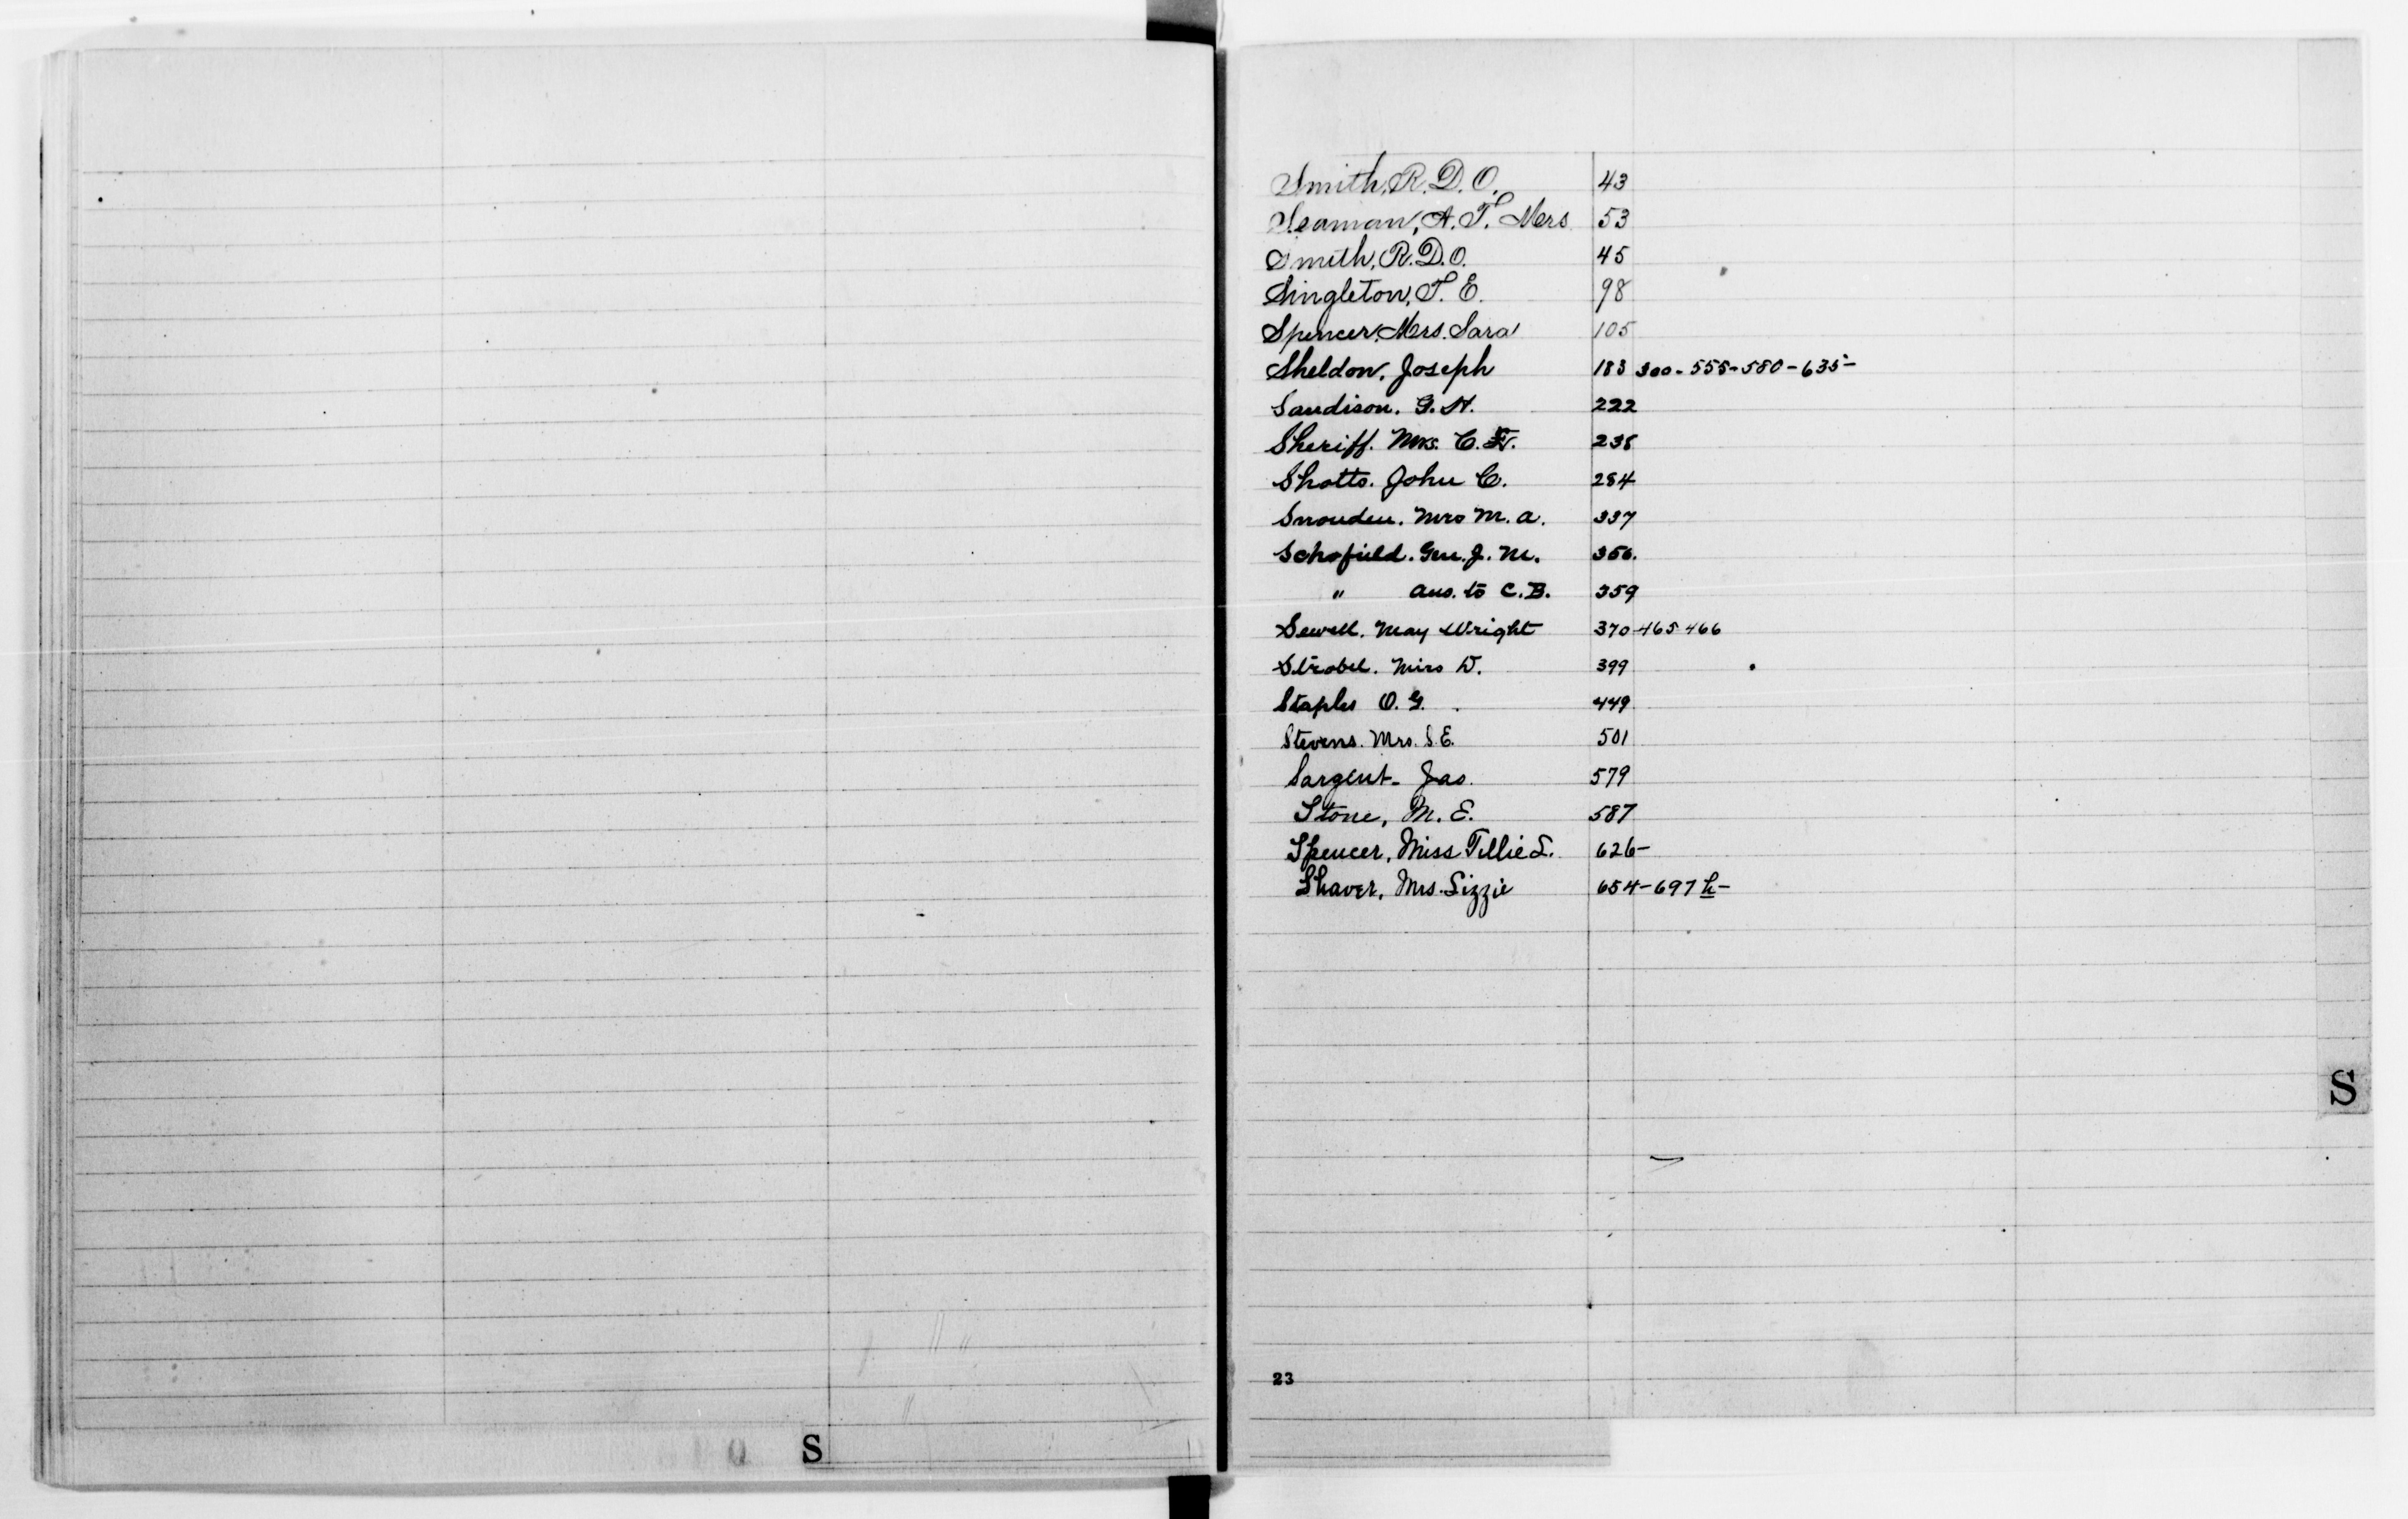 Smith, R. D. O. 43
Seaman, A. T. Mers 53
Smith, R. D. O. 45
Singleton, T. E. 98
Spencer, Mers. Sara 105
Sheldon, Joseph 183 300 - 555 - 580 - 635 -
Sandison. G. H. 222
Sheriff. Mrs. C. 238
Shotts. John C. 284
Snouden. Mrs M. A. 337
Schofield. Gen. J. M. 356.
" Ans. to C. B. 359
Sewell. May Wright 370 - 465 466
Strobel. Miss D. 399
Staples O. G. 449
Stevens. Mrs. S. E. 501
Sargent - Jas. 579
Stone, M. E. 587
Spencer, Miss Tillie S. 626 -
Shaver, Mrs. Lizzie 654 - 697 h -
S
23
S